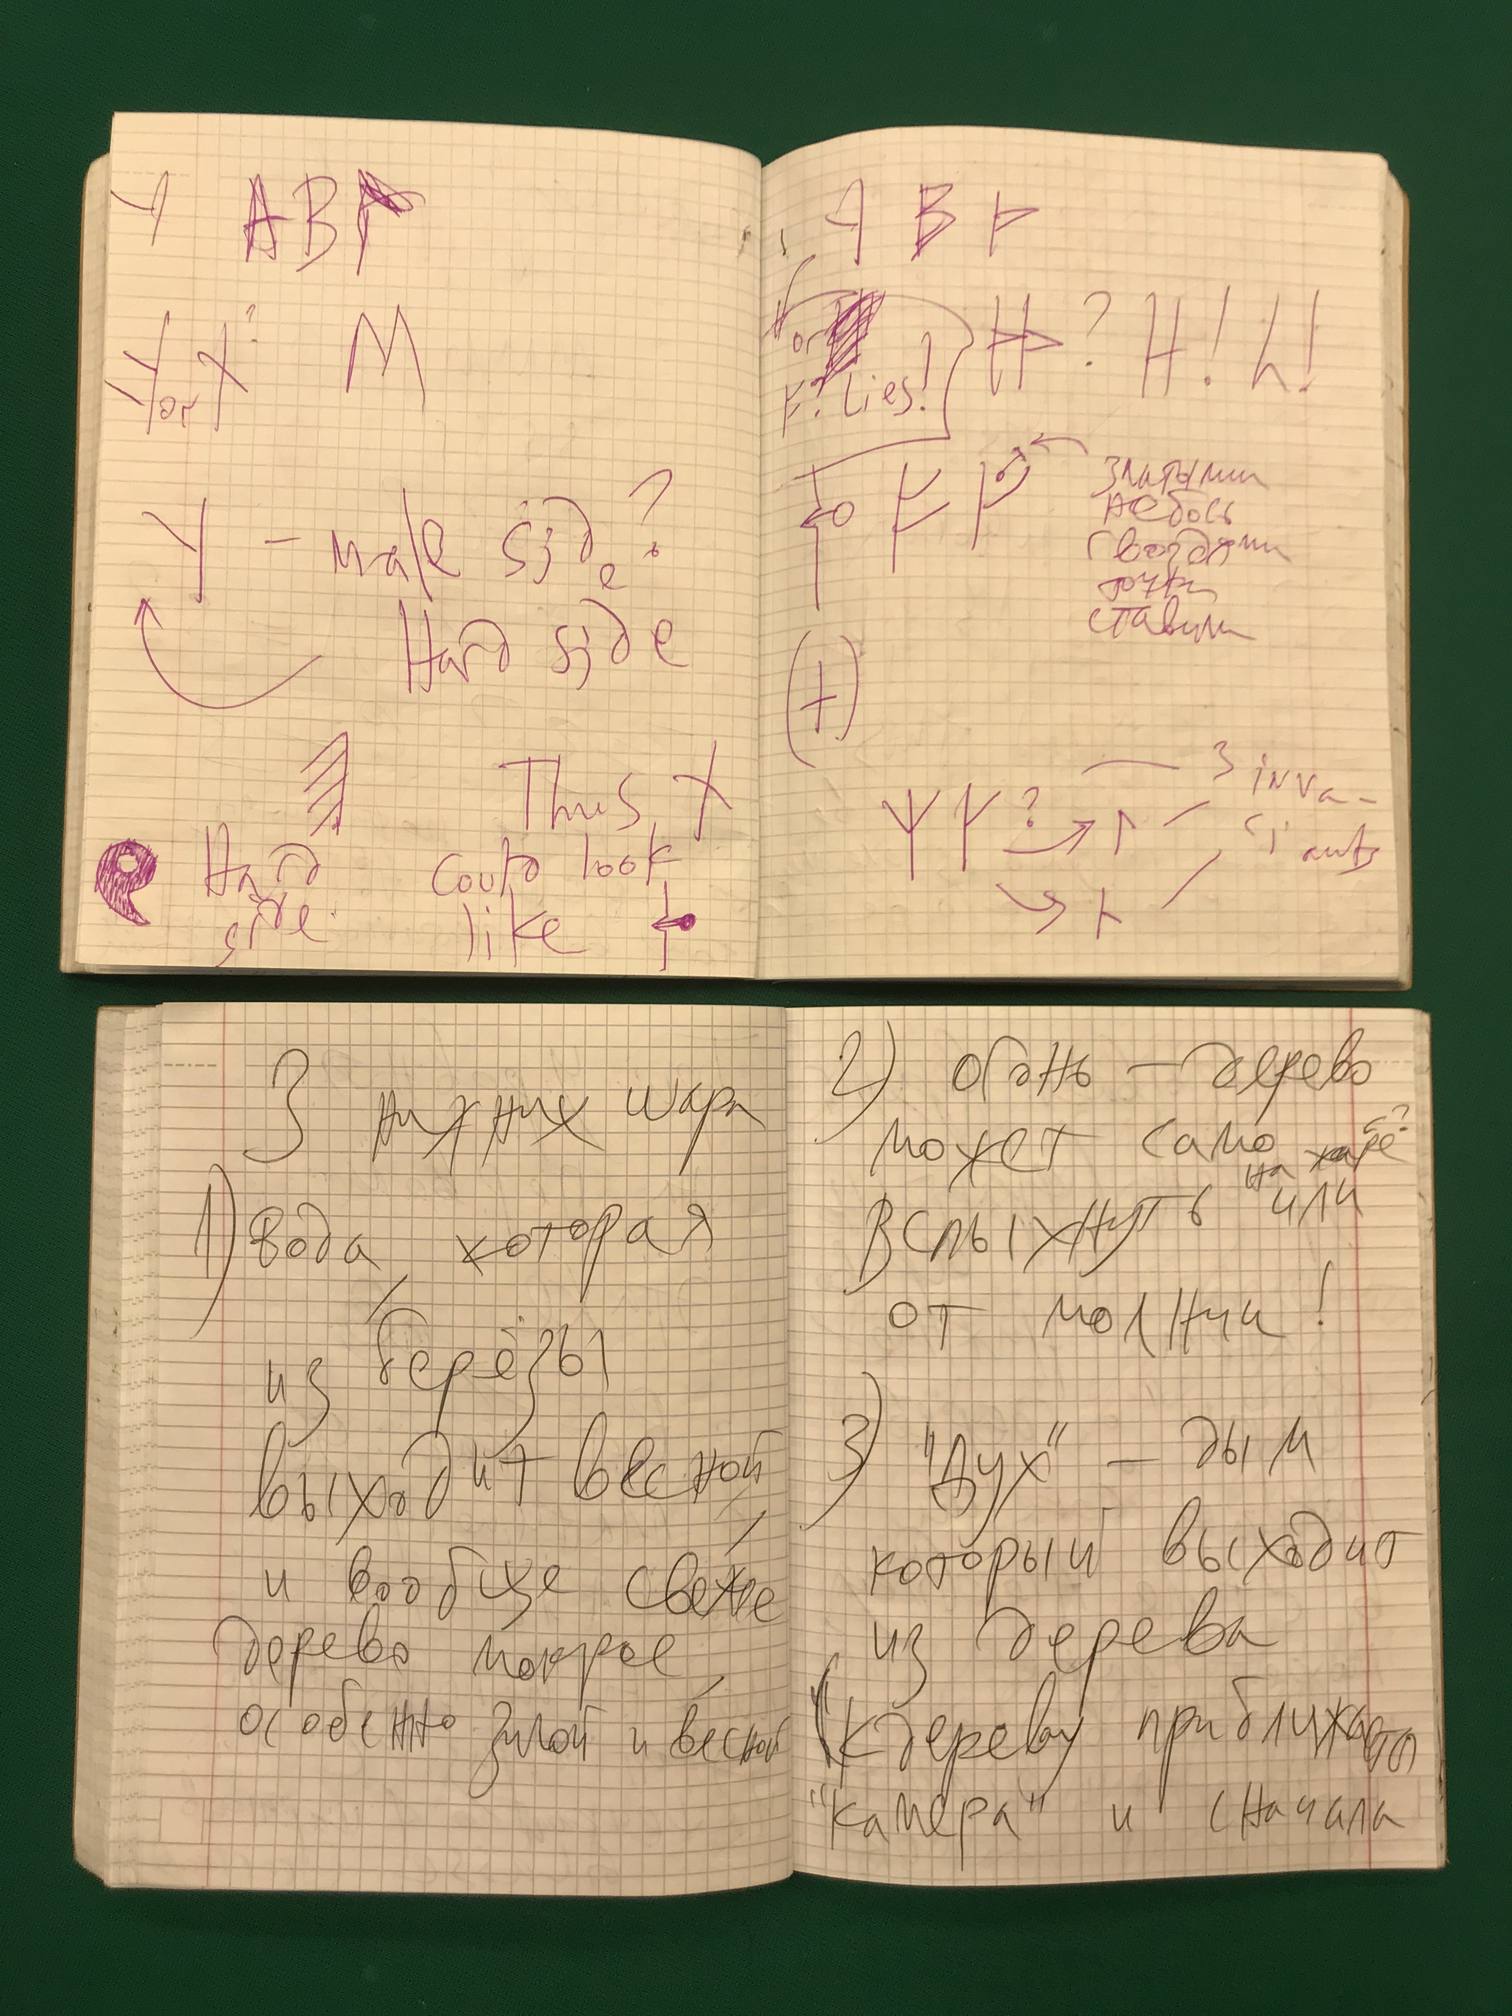 Y ABГ
Y or X? M
Y – male side?
Hard side
Thus, X
Hard could look
side. like
A B Г
or
F? Lies! H? H! h!
златыми
небось
гвоздями
точки
ставили
(+)
? 3 inva-
riants
3 нижних шара
1) Вода, которая
из берёзы
выходит весной,
и вообще свежее
дерево мокрое,
особенно зимой и весной
2) огонь – дерево
может само
на жаре?
вспыхнуть или
от молнии!
3) "Дух" – дым
который выходит
из дерева
(к дереву приближается
"камера" и сначала